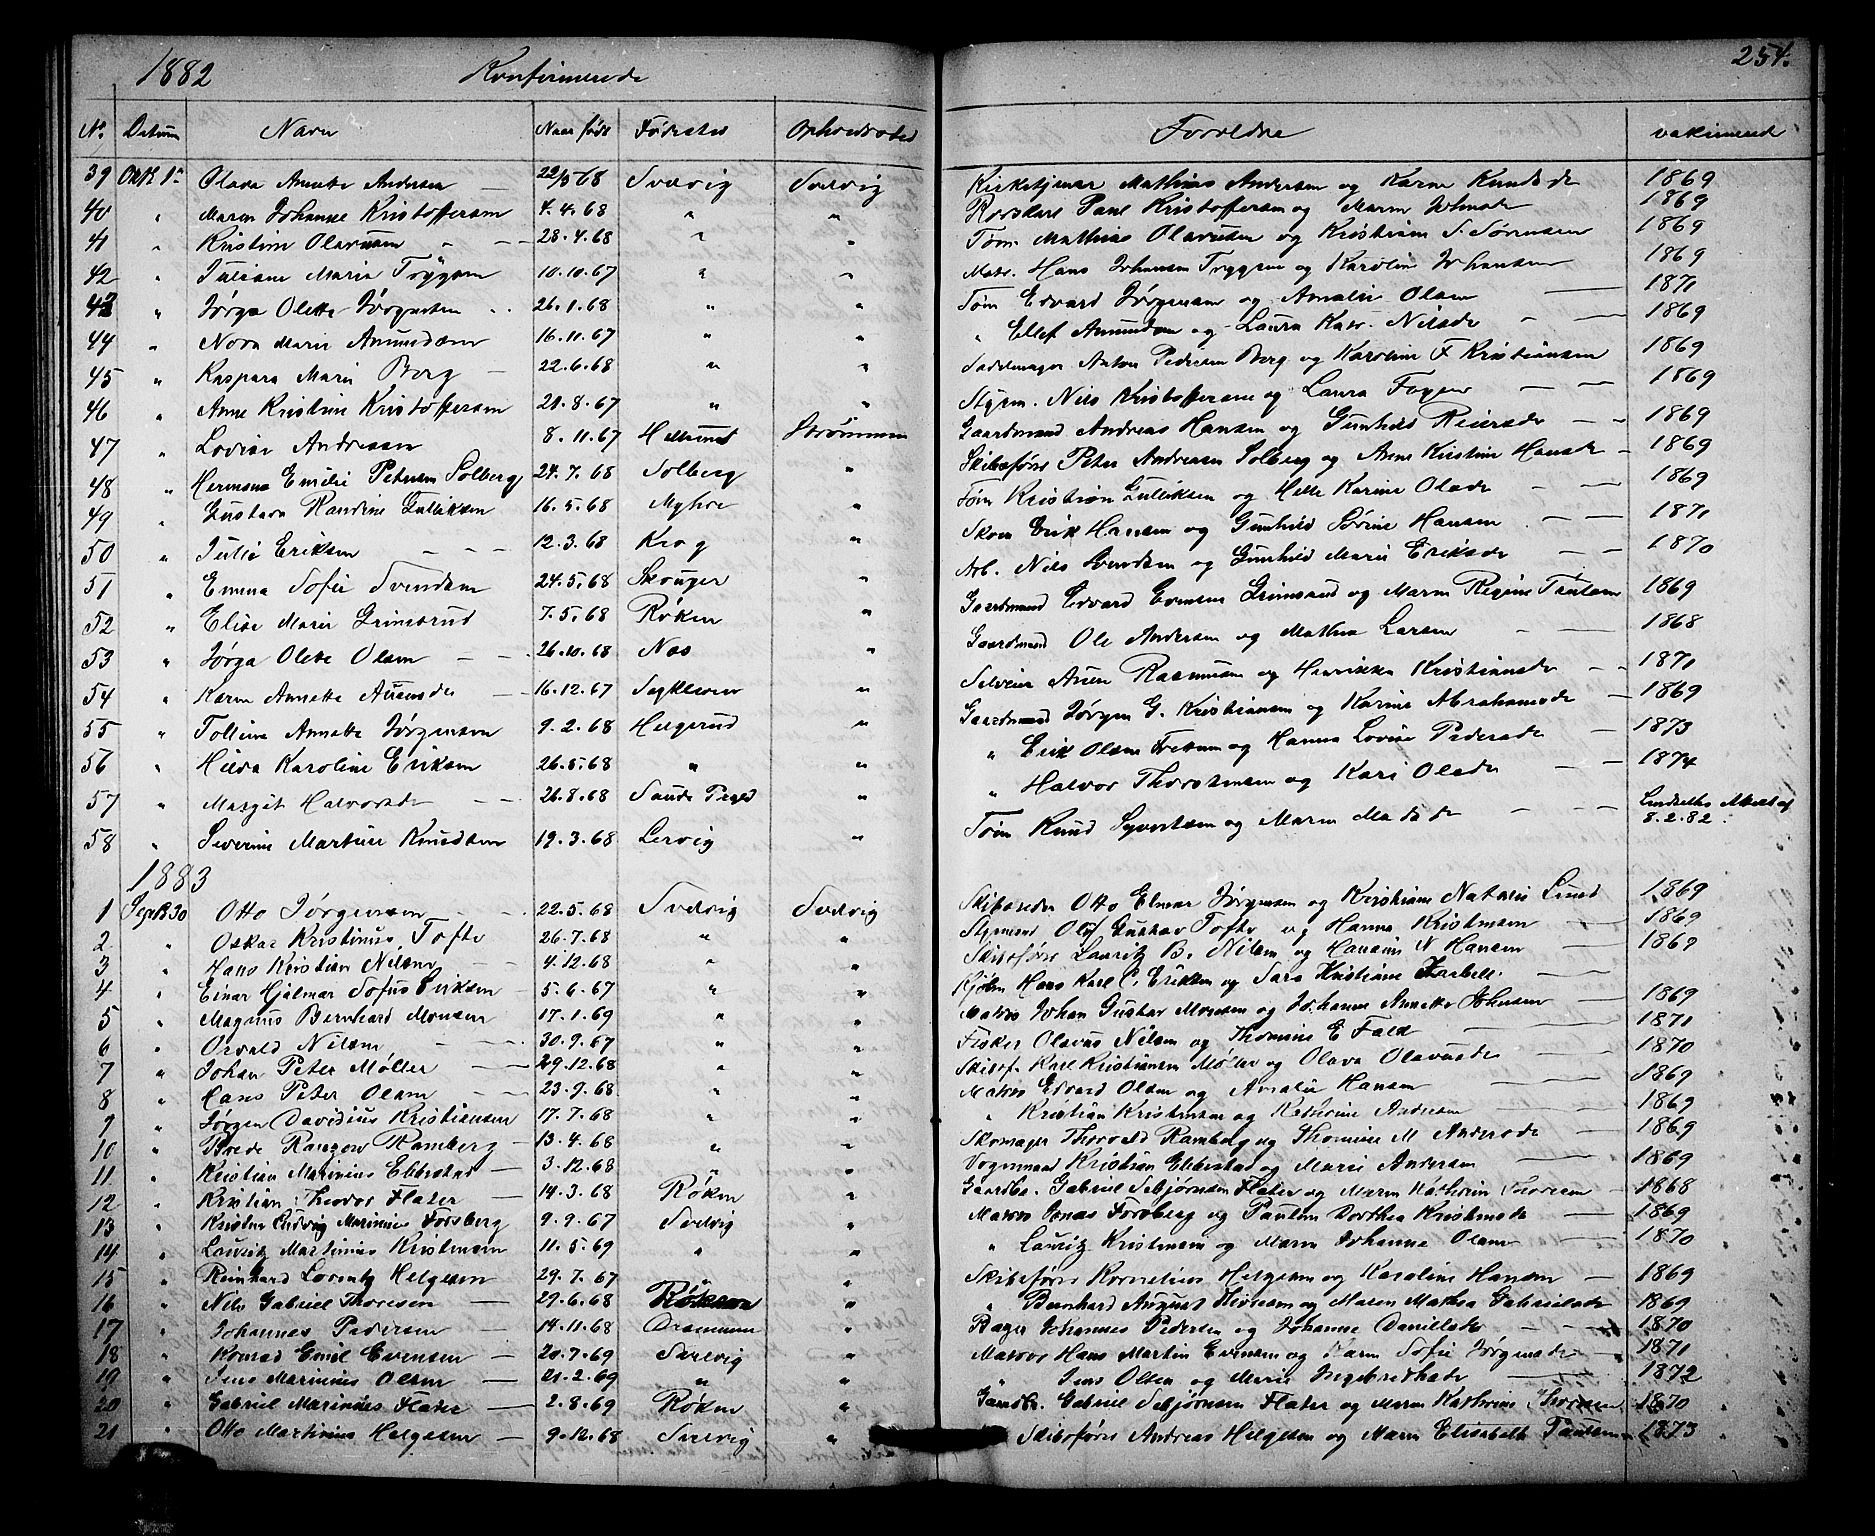 1882 Konfirmerede 254.
No. Datum Navn Naar født Fødested Opholdssted Forældre vakcinerede
39 Oktb 1ste Olava Annette Andersen 22/5 68 Svelvig Svelvig Kirketjener Mathias Andersen og Karen Knudsd 1869
40 " Maren Johanne Kristoffersen 4.4.68 " " Paul Kristoffersen og Maren Johnsd 1869
41 " Kristine Olavesen 28.4.68 " " Tøm. Mathias Olavesen og Kristiane S. Sørensen 1869
42 " Juliane Marie Tryggsen 10.10.67 " " Matr. Hans Johansen Tryggsen og Karoline Johansen 1869
43 " Jørga Olette Jørgensen 26.1.68 " " Tøm Edvard Jørgensen og Amalie Olsen 1871
44 " Nora Marie Amundsen 16.11.67 " " " Ellef Amundsen og Laura Katr. Nilsd 1869
45 " Kaspara Marie Borg 22.6.68 " " Sadelmager Anton Pedersen Borg og Karoline F Kristiansen 1869
46 " Anne Kristine Kristoffersen 21.8.67 " " Styrm. Nils Kristoffersen og Laura 1869
47 " Lovise Andresen 8.11.67 Strømmen Gaardmand Andreas Hansen og Gunhild Reiersd 1869
48 " Hermana Emilie Petersen Solberg 24.7.68 Solberg " Skibsfører Peter Andersen Solberg og Anne Kristine Hansd 1869
49 " Gustava Randine Gulliksen 16.5.68 Myhre " Tøm Kristian Gulliksen og Helle Karine Olsd 1869
50 " Julie Eriksen 12.3.68 Krog " Skom Erik Hansen og Gunhild Sørine Hansen 1871
51 " Emma Sofie Svendsen 24.5.68 Skouger " Arb. Nils Svendsen og Gunhild Marie Eriksd 1870
52 " Elise Marie Grimsrud 7.5.68 Røken " Gaardmand Edvard Evensen Grimsrud og Maren Regine Paulsen 1869
53 " Jørga Olette Olsen 26.10.68 Næs " Gaardmand Ole Andersen og Mathea Larsen 1868
54 " Karen Annette 16.12.67 " Selveier Rasmussen og Henrikka Kristiansd 1871
55 " Tolline Annette Jørgensen 9.2.68 Helgerud " Gaardmand Jørgen G. Kristiansen og Karine Abrahamsd 1869
56 " Hilda Karoline Eriksen 26.5.68 " " " Erik Olsen og Hanna Lovise Pedersd 1873
57 " Margit Halvorsd 26.8.68 " " Halvor Thorstensen og Kari Olsd 1874
58 " Severine Martine Knudsen 19.3.68 Lervig " Tøm Knud Syvertsen og Maren Madsd 8.2.82
1883
1 Septb 30 Otto Jørgensen 22.5.68 Svelvig Svelvig Skibsreder Otto Elmar Jørgensen og Kristiane Natalie Lund 1869
2 " Oskar Kristinus Tofte 26.7.68 " " Styrmand Olof Gustav Tofte og Hanna Kristensen 1869
3 " Hans Kristian Nilsen 4.12.68 " " Skibsfører Lauritz B. Nilsen og Hansine N Hansen 1869
4 " Einar Hjalmar Sofus Eriksen 5.6.67 " " Kjøbm Hans Karl C. Eriksen og Sara Kristiane
5 " Magnus Bernhard Monsen 17.1.69 " " Matros Johan Gustav Monsen og Johanne Annette Johnsen 1869
6 " Osvald Nilsen 30.9.67 " " Fisker Olavus Nilsen og Thomine E Falk 1871
7 " Johan Peter Møller 29.12.68 " " Skibsf. Karl Kristiansen Møller og Olava Olavusd 1870
8 " Hans Peter Olsen 23.9.68 " " Matros Edvard Olsen og Amalie Hansen 1869
9 " Jørgen Davidius Kristensen 17.7.68 " " " Kristian Kristensen og Kathrine Andersen 1869
10 " Brede Rangow Ramberg 13.4.68 " " Skomager Thorvald Ramberg og Thomine M Andersd 1869
11 " Kristian Marinius Ebbestad 3.12.68 " " Vognmand Kristian Ebbestad og Marie Andersen 1869
12 " Kristian Theodor Flater 14.3.68 Røken " Gaardbr. Gabriel Sebjørnsen Flater og Maren Kathrine Thoresen 1868
13 " Kristen Ludvig Marinius Forsberg 9.9.67 Svelvig " Matros Jonas Forsberg og Pauline Dorthea Kristensd 1869
14 " Lauritz Martinius Kristensen 11.5.69 " " " Lauritz Kristensen og Maren Johanne Olsen 1870
15 " Reinhard Lorentz Helgesen 29.7.67 " Skibsfører Kornelius Helgesen og Karoline Hansen 1869
16 " Nils Gabriel Thoresen 29.6.68 Røken " " Bernhard August Thoresen og Maren Mathea Gabrielsd 1869
17 " Johannes Pedersen 14.11.68 Drammen " Bager Johannes Pedersen og Johanne Danielsd 1870
18 " Konrad Emil Evensen 20.7.69 Svelvig " Matros Hans Martin Evensen og Maren Sofie Jørgensd 1871
19 " Jens Marinius Olsen 21.2.69 " " " Jens Olsen og Marie Ingebrethsd 1872
20 " Gabriel Marinius Flater 2.8.69 Røken " Gaardbr. Gabriel Sebjørnsen Flater og Maren Kathrine Thoresen 1870
21 " Otto Martinius Helgesen 9.12.68 Svelvig " Skibsfører Andreas Helgesen og Maren Elisabeth Paulsen 1873